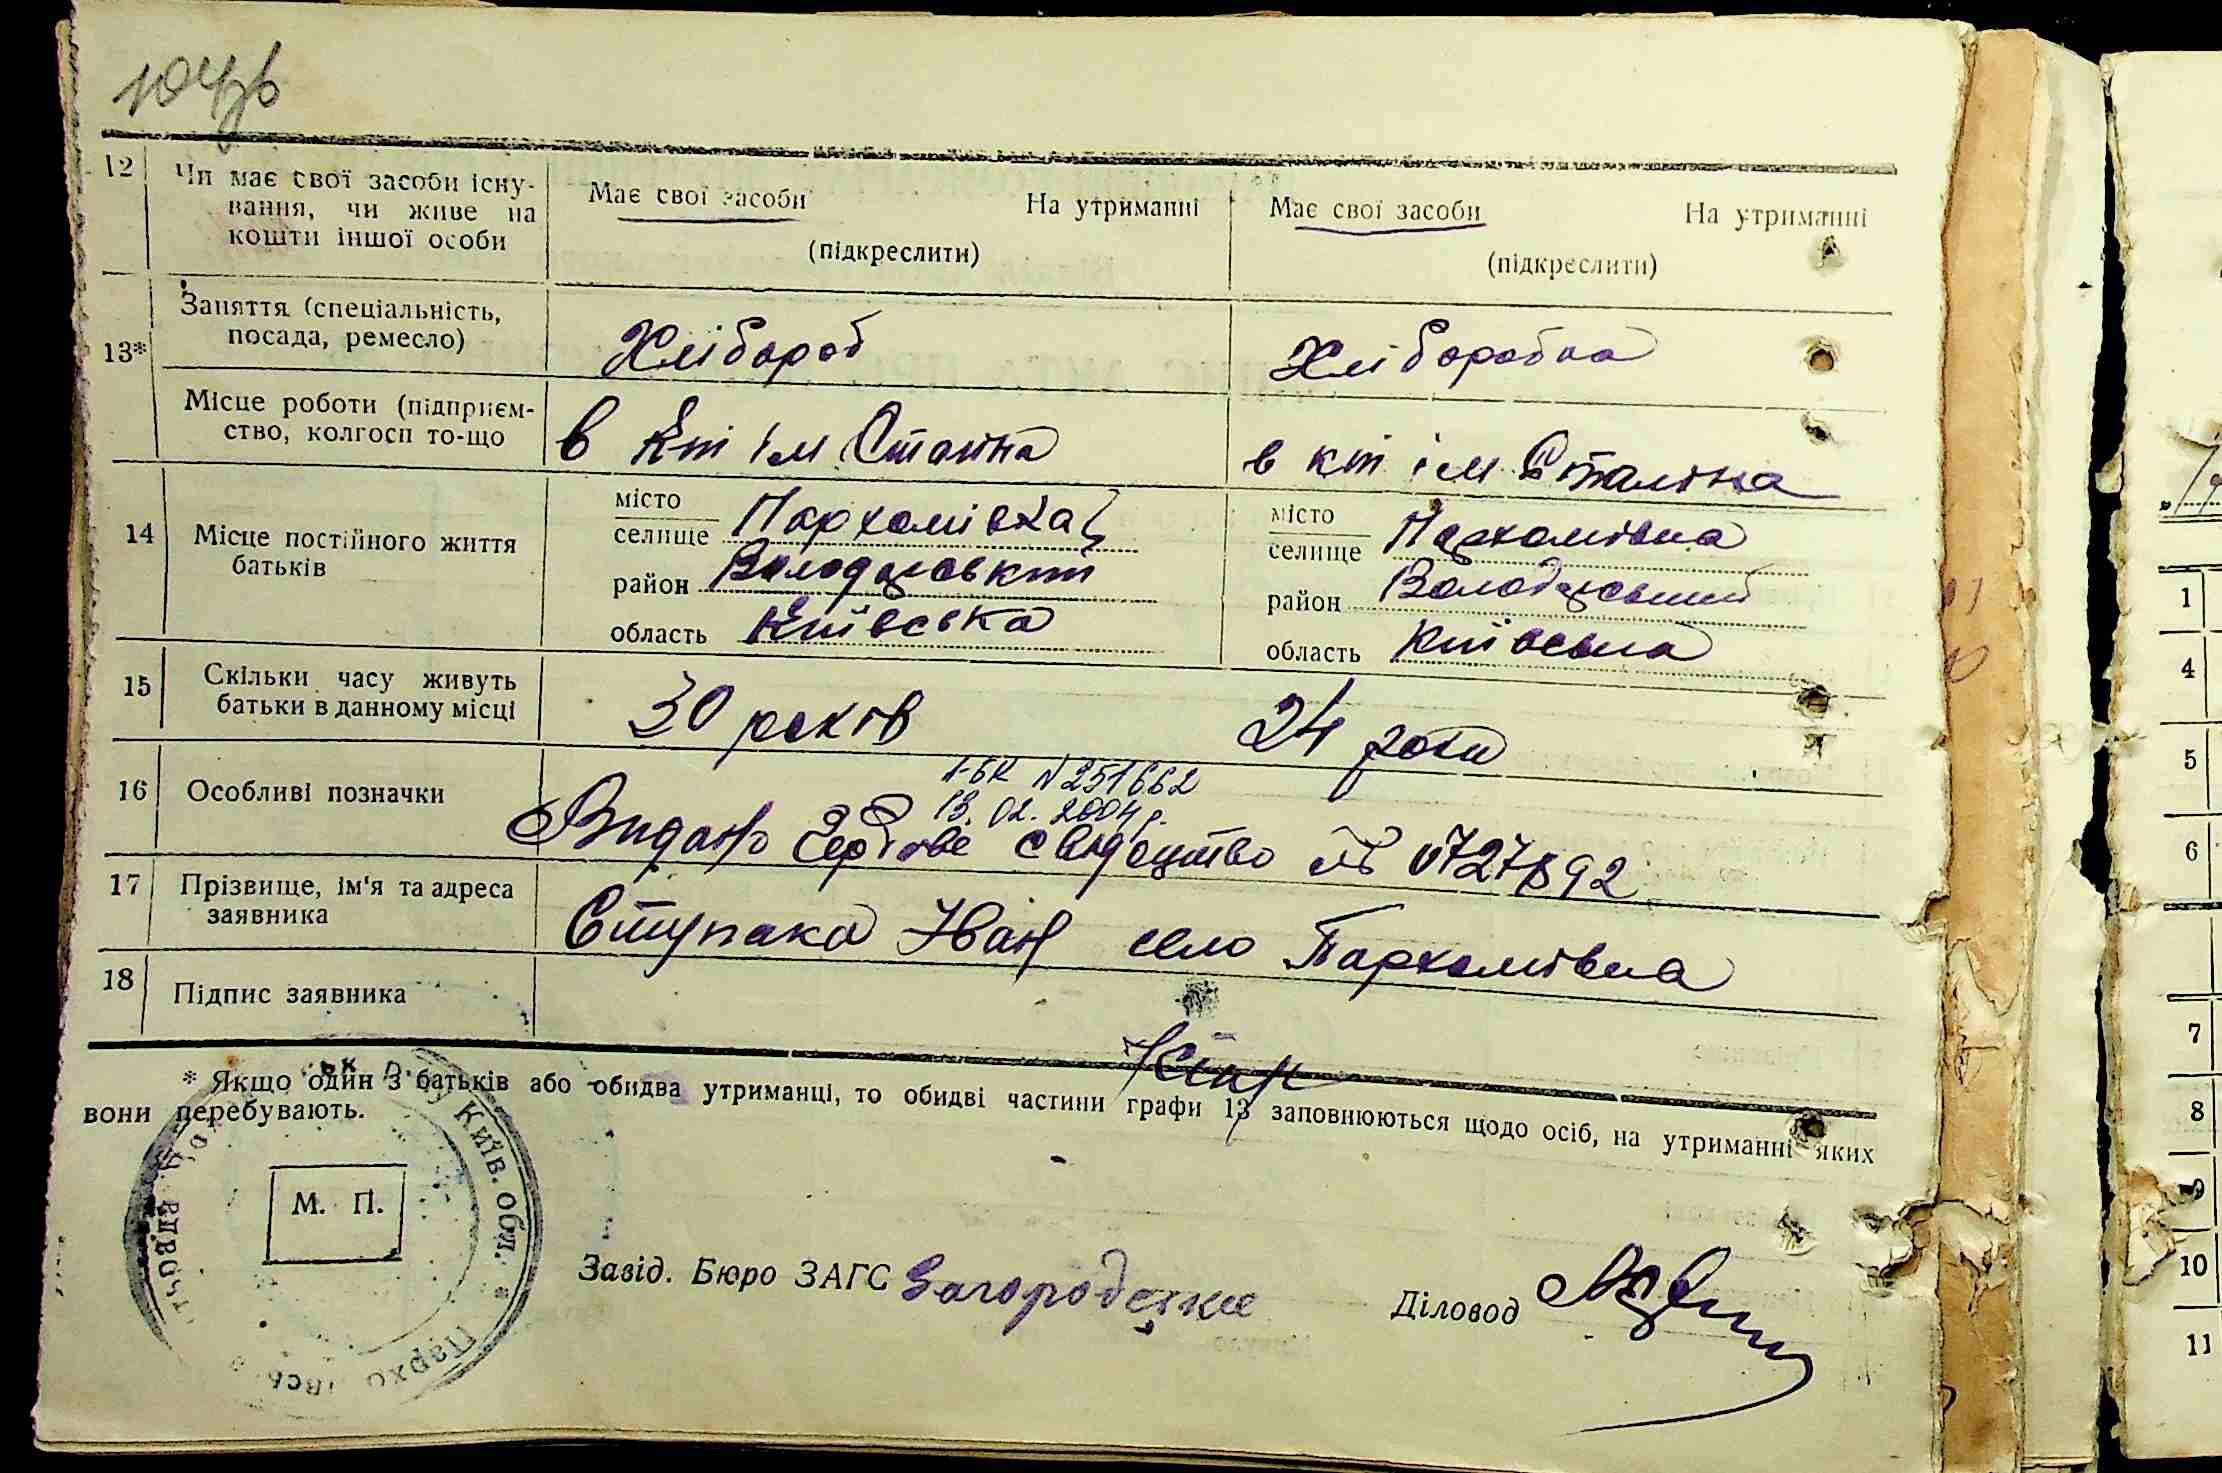 12 Чи має свої засоби існу-
вання, чи живе на
кошти іншої особи
Має свої засоби На утриманні
(підкреслити)
Має свої засоби На утриманні
(підкреслити)
13*
Заняття (спеціальність,
посада, ремесло)
Хлібороб
Хліборобка
Місце роботи (підприєм-
ство, колгосп то-що
в кт ім Сталіна
в кт ім Сталіна
14 Місце постійного життя
батьків
місто
селище Пархомівка
район Володарський
область Київська
місто
селище Пархомівка
район Володарський
область Київська
15 Скільки часу живуть
батьки в данному місці
30 років
24 роки
16 Особливі позначки
І-БК N 251662
13.02.2004 р.
Видано гербове свідоцтво № 0727892
17 Прізвище, ім'я та адреса
заявника
Ступака Іван село Пархомівка
18 Підпис заявника
* Якщо один з батьків або обидва утриманці, то обидві частини графи 13 заповнюються щодо осіб, на утриманні яких
вони перебувають.
Київ. обл. *
М. П.
Завід. Бюро ЗАГС Загородецкие
Діловод
1
4
5
6
7
8
9
10
11